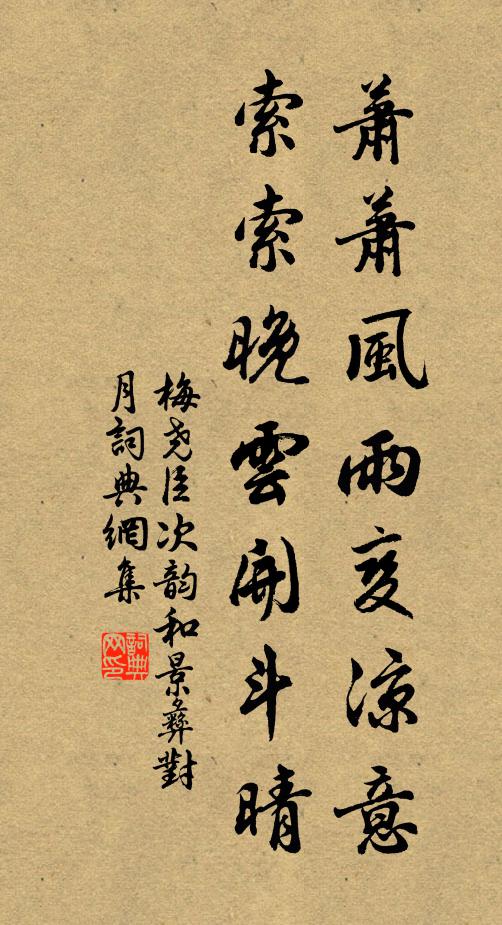 蕭蕭風雨变涼意
索索晚雲開斗晴
梅尧臣次韵和景彝對
月詞典網集
詞典
网印